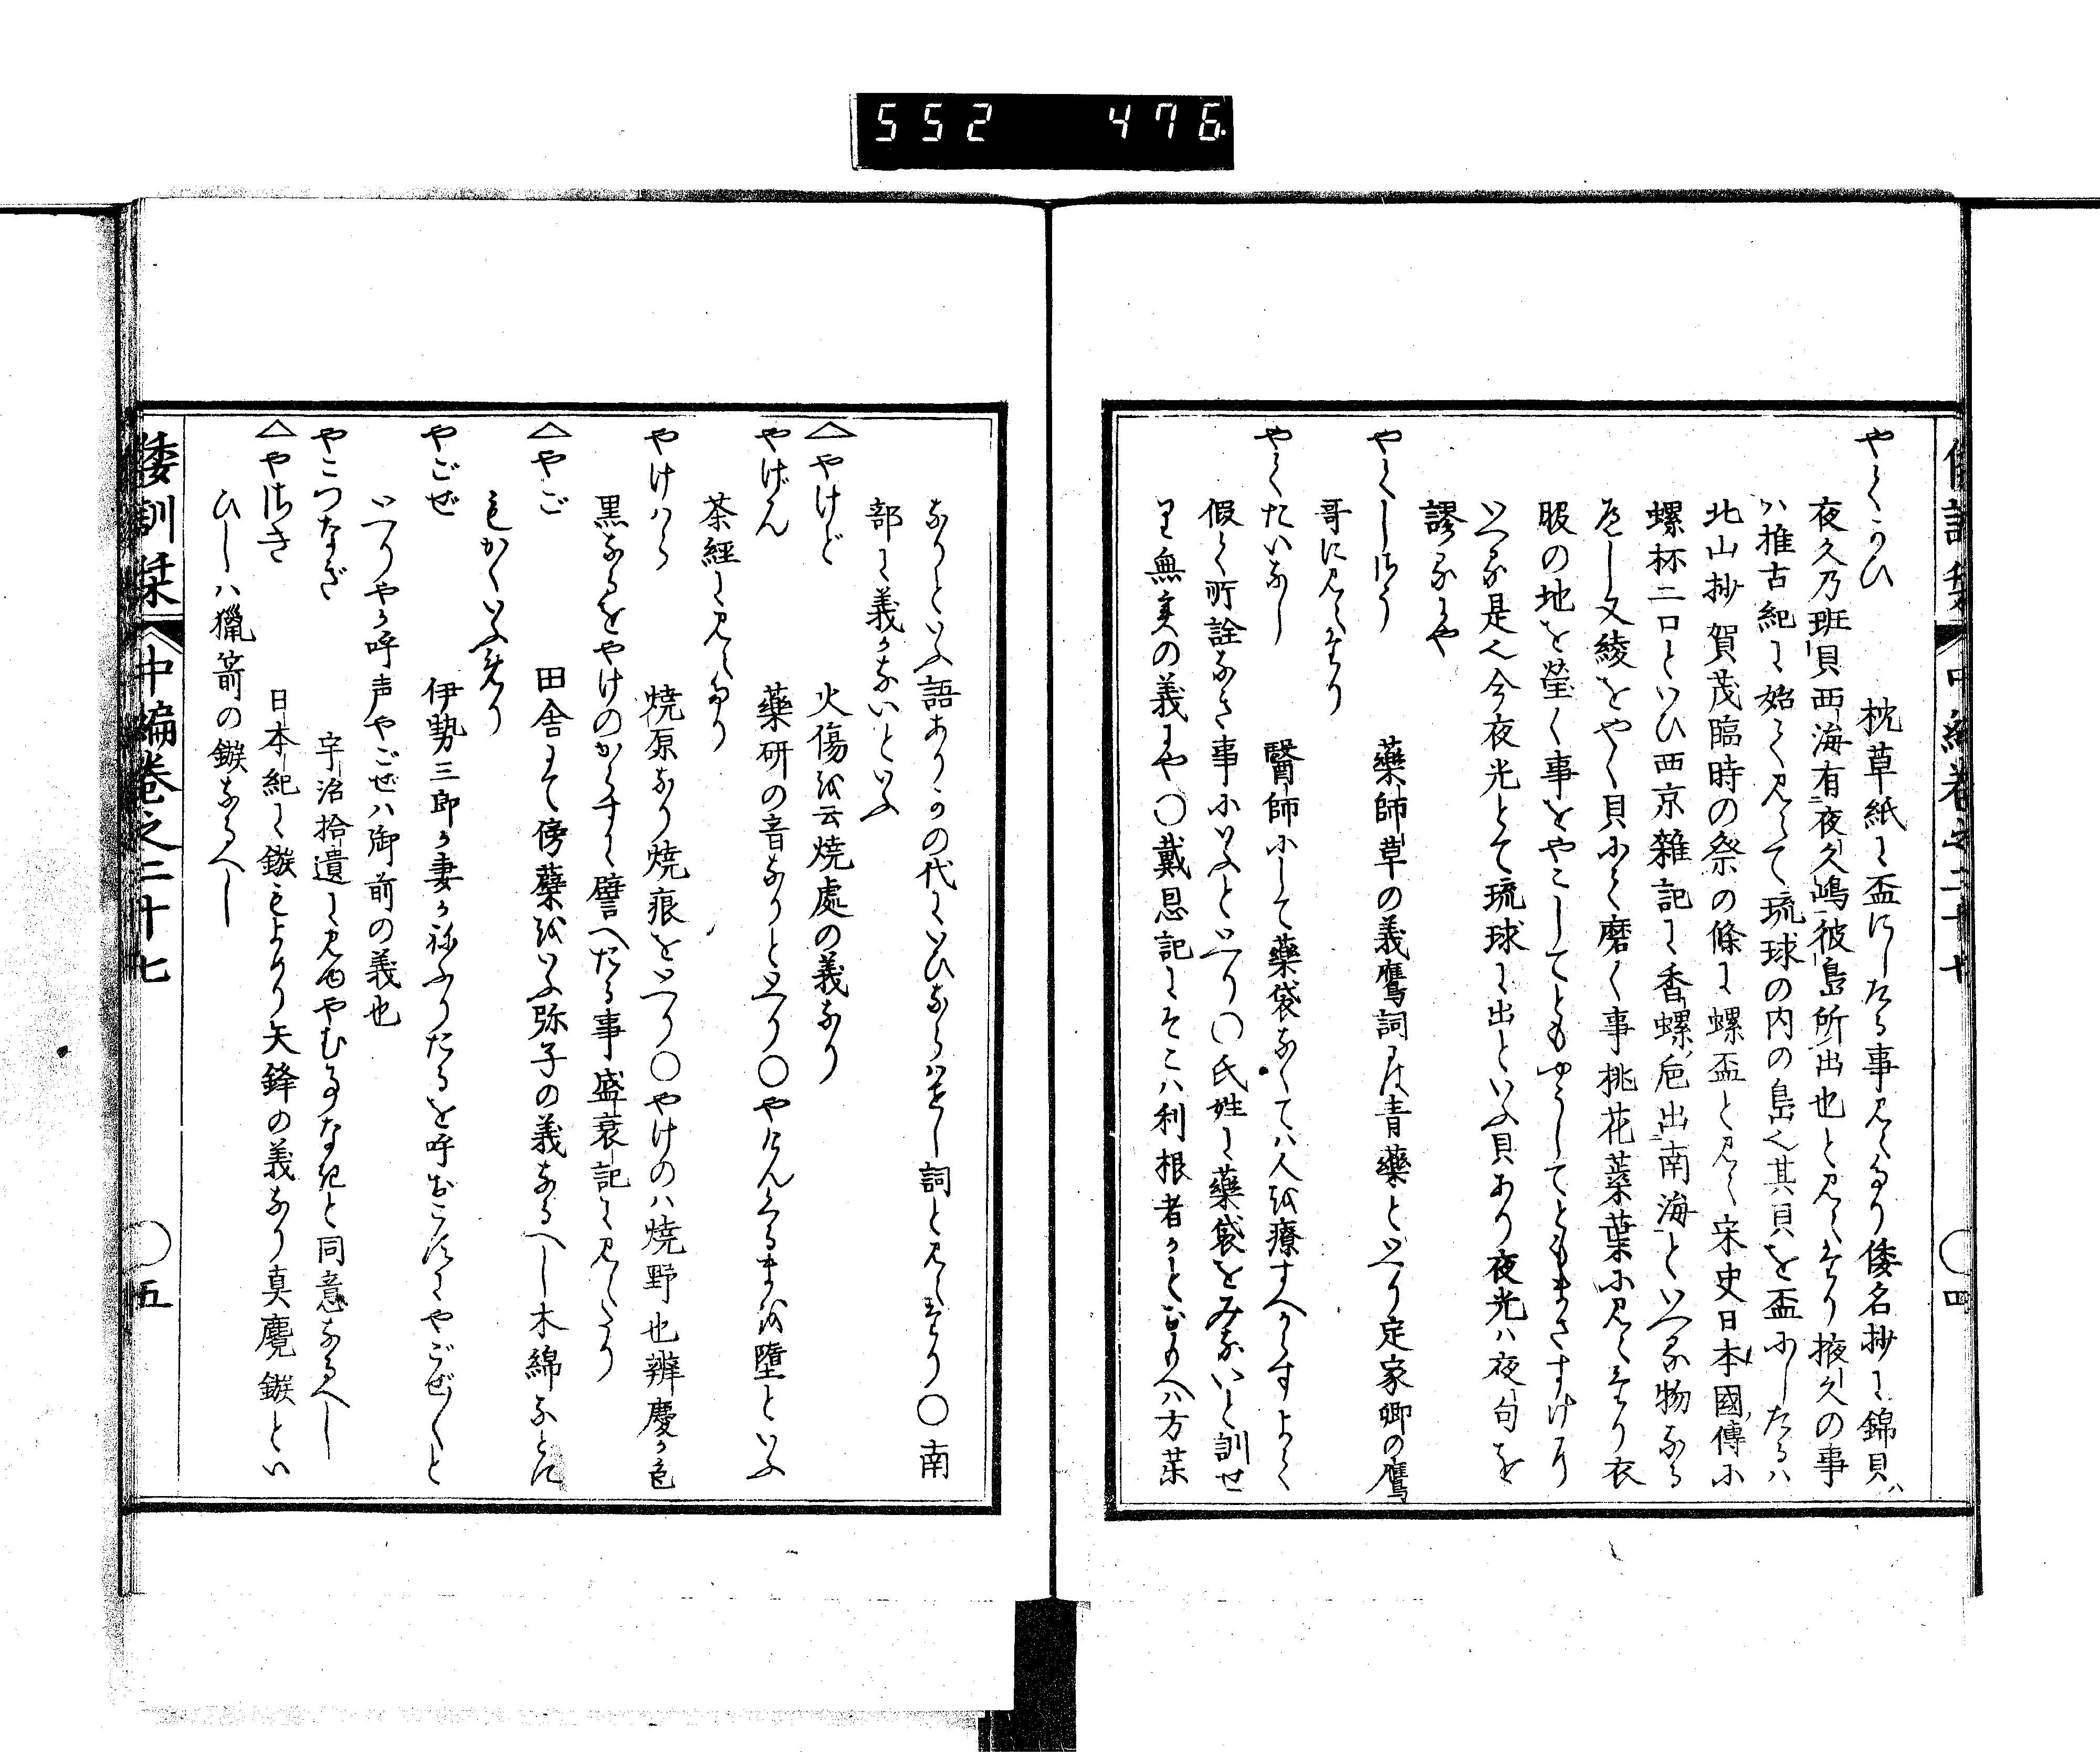 552 476
やくかひ 枕草紙に盃にしたる事見えたり倭名抄に錦貝ハ
夜久乃班貝西海有夜久嶋彼島所出也と見えたり掖久の事
ハ推古紀に始て見えて琉球の内の島也其貝を盃にしたるハ
北山抄賀茂臨時の祭の條に螺盃と見え宋史日本國傳に
螺杯二口といひ西京雜記に香螺巵出南海といへる物なる
へし又綾をやく貝にて磨く事桃花蘂葉に見えたり衣
服の地を瑩く事をやこしてともゆうしてともまさすけに
いへる是也今夜光とて琉球に出といふ貝あり夜光ハ夜句を
謬るにや
やくしさう 藥師草の義鷹詞には青藥といへり定家卿の鷹
哥に見えたり
やくたいなし 醫師にして藥袋なくてハ人を療すへからすよて
假て所詮なき事にいふといへり〇氏姓に藥袋をみないと訓せ
り無実の義にや〇戴恩記にそこハ利根者かとおもへハ方藥
なりといふ語ありかの代にいひならはせし詞と見えたり〇南
部に義かないといふ
△やけど 火傷を云焼處の義なり
やげん 藥研の音なりといへり〇やけんくるまを墮といふ
茶經に見えたり
やけハら 焼原なり焼痕をいへり〇やけのハ焼野也辨慶か色
黒なるをやけのからすに譬へたる事盛衰記に見えたり
△やご 田舎にて傍蘖をいふ弥子の義なるへし木綿なとに
もかくいふめり
やごぜ 伊勢三郎か妻かねふりたるを呼おこすにやごぜ〱と
いへりやと呼声やごぜハ御前の義也
やこつなぎ 宇治拾遺に見ゆやむことなきと同意なるへし
△やさき 日本紀に鏃もよめり矢鋒の義なり真麑鏃とい
ひしハ獵箭の鏃なるへし
倭訓栞 中編卷之二十七 〇五